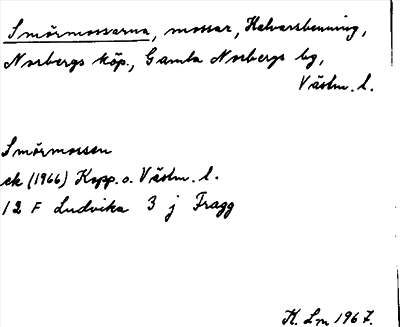 Smörmossarna, mossar, Halvarsbenning,
Norbergs köp., Gamla Norbergs bg,
Västm. l.
Smörmossen
ek (1966) Kopp. o. Västm. l.
12 F Ludvika 3 j Fragg
K. Lm 1967.